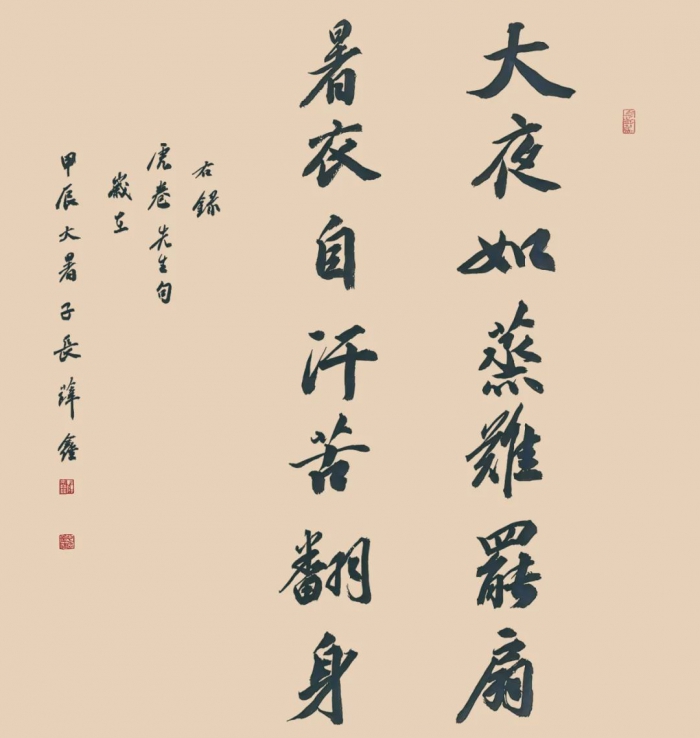 大夜如蒸難罷扇
暑衣自汗苦翻身
右録
虎卷先生句
歲在
甲辰大暑子長薛鑫